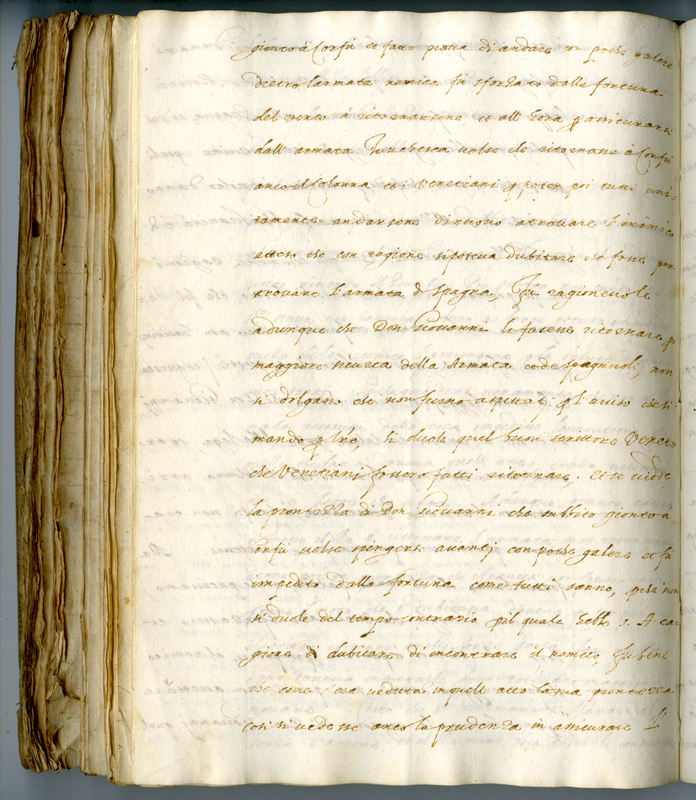 gionto à Corfù et fatto prova di andare con poche galere
dietro l'armata nemica fù sforzato dalla fortuna
del vento à ritornarsene et all' hora p assicurarsi
dall' armata Turchesca volse che ritornasse à Corfù
anco il Colonna et i Venetiani p poter poi tutti uni-
tamente andarsene di nuovo a trovare l'inimico
che con ragione si poteva dubitare se fosse per
trovare l'armata di Spagna, Fù ragionevole
adunque che Don Giovanni li facesse ritornare p
maggiore sicurezza della Armata et de spagnuoli, non
si dolgano che non furno aspettati p l'aviso che si
mandò p loro, si duole quel buon scrittore Veneto
che Venetiani furono fatti ritornare. Et se vidde
la prontezza di Don Giovanni che subbito gionto à
Corfù volse spingersi avanti con poche galere et fù
impedito dalla fortuna come tutti sanno, perche non
si duole del tempo contrario p il quale hebbe S. A ca-
gione di dubitare di incontrare il nemico, fu bene
che come s'era veduta in quell' atto la sua prontezza
così si vedesse anco la prudenza in assicurare l'